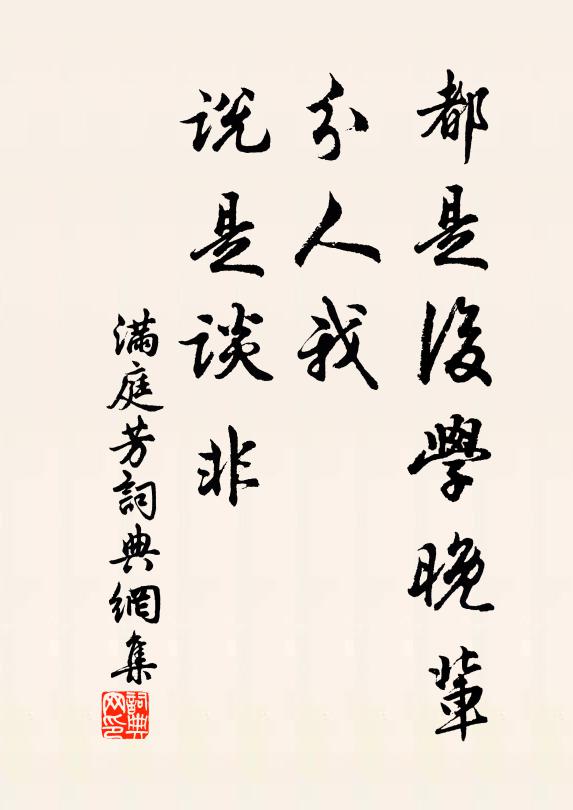 都是後學晚輩
分人我
説是談非
滿庭芳詞典網集
詞典网印